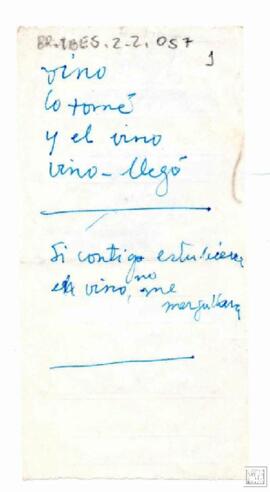 BR.IBES.2-2.057
1
vino
lo tomé
y el vino
vino - llegó
Si contigo estuviera
no
vino, me